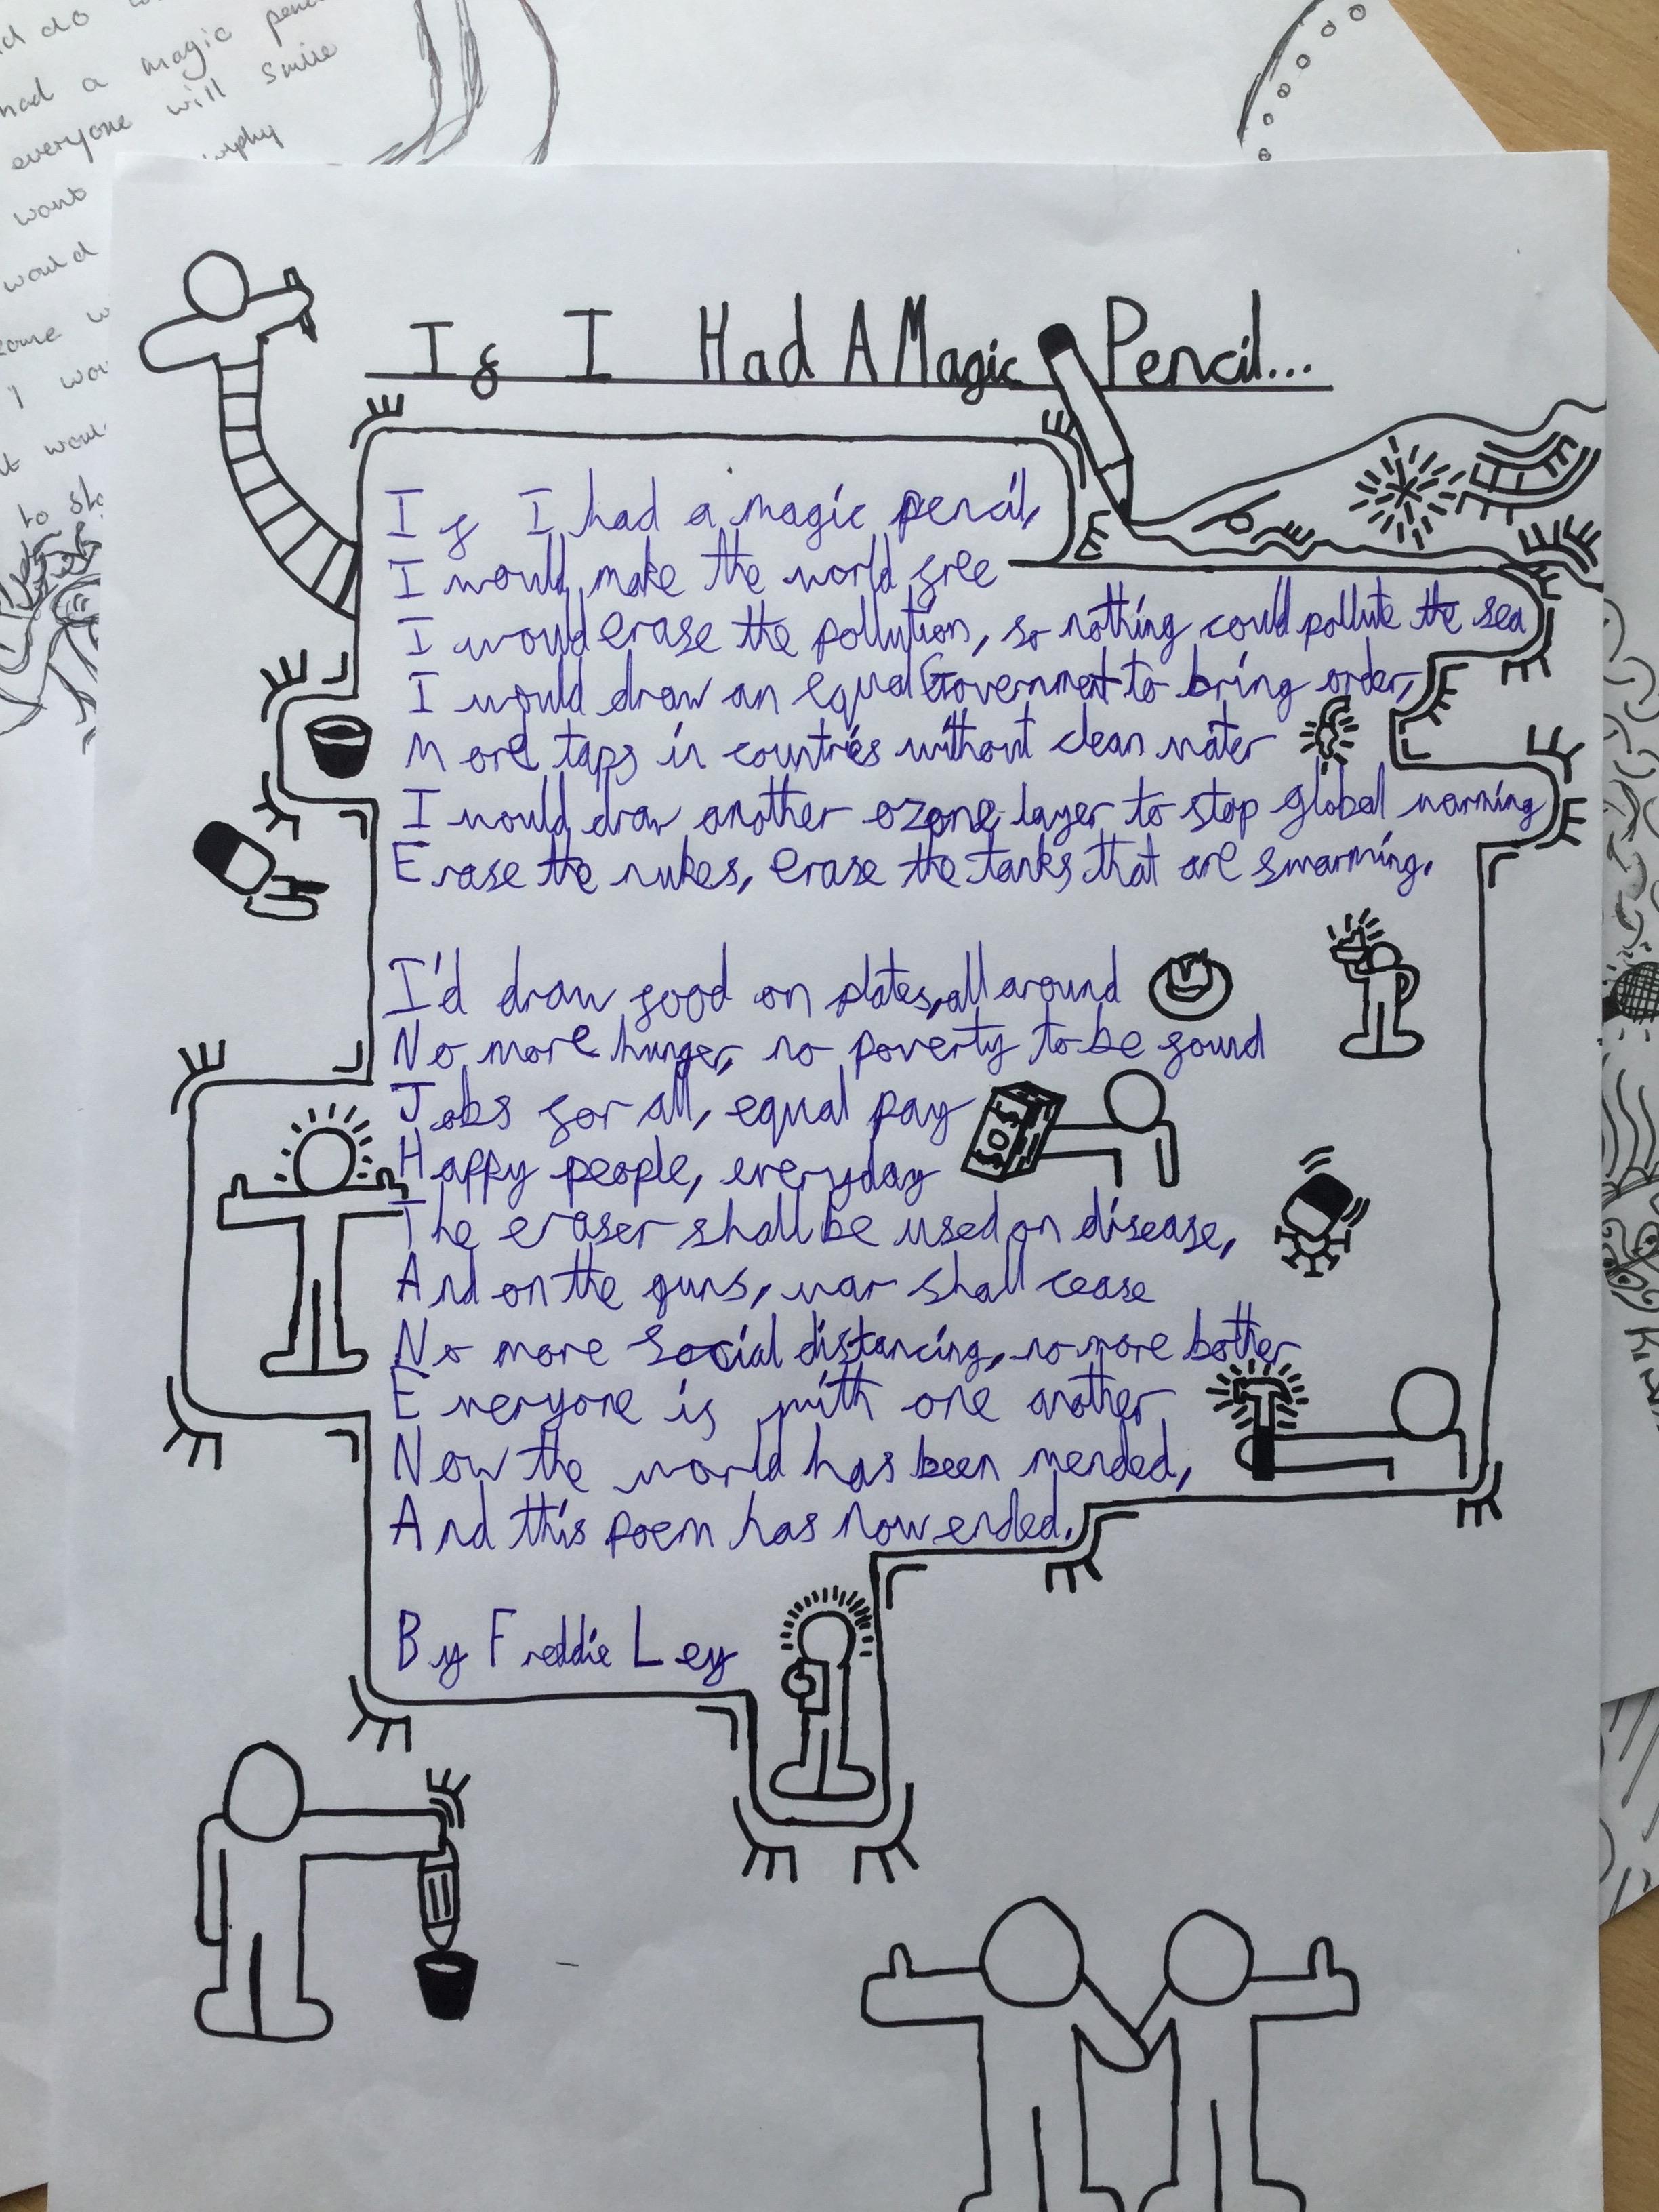 d do
had a magic penc
everyone will smile
want
would
come w
I wou
t woul
to sto
If I Had A Magic Pencil...
If I had a magic pencil,
I would make the world free
I would erase the pollution, so nothing could pollute the sea
I would draw an equal Government to bring order,
More taps in countries without clean water
I would draw another ozone layer to stop global warming
Erase the nukes, erase the tanks that are swarming.
I'd draw food on plates, all around
No more hunger, no poverty to be found
Jobs for all, equal pay
Happy people, everyday
The eraser shall be used on disease,
And on the guns, war shall cease
No more social distancing, no more bother
Everyone is with one another
Now the world has been mended,
And this poem has now ended.
By Freddie Ley